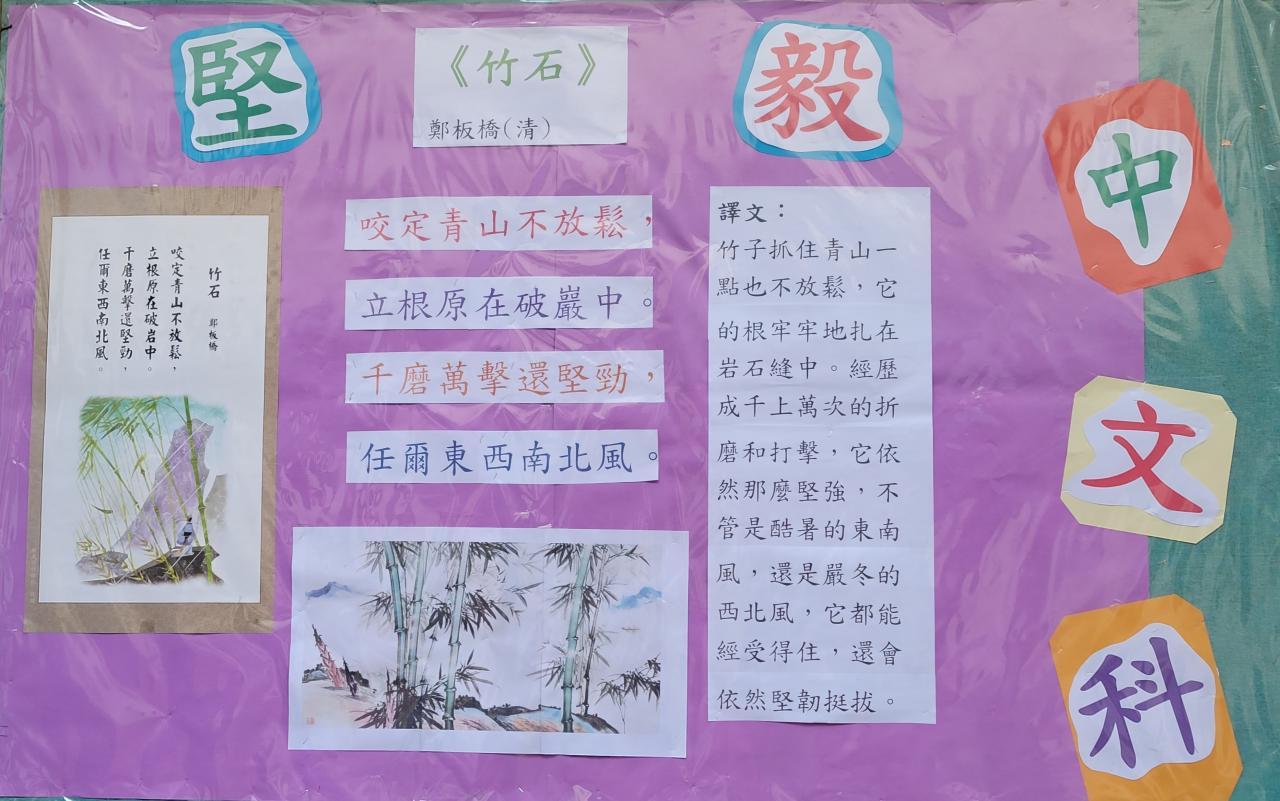 堅
毅
《竹石》
鄭板橋(清)
中
文
科
竹石 鄭板橋
咬定青山不放鬆，
立根原在破岩中。
千磨萬擊還堅勁，
任爾東西南北風。
咬定青山不放鬆，
立根原在破巖中。
千磨萬擊還堅勁，
任爾東西南北風。
譯文：
竹子抓住青山一
點也不放鬆，它
的根牢牢地扎在
岩石縫中。經歷
成千上萬次的折
磨和打擊，它依
然那麼堅強，不
管是酷暑的東南
風，還是嚴冬的
西北風，它都能
經受得住，還會
依然堅韌挺拔。